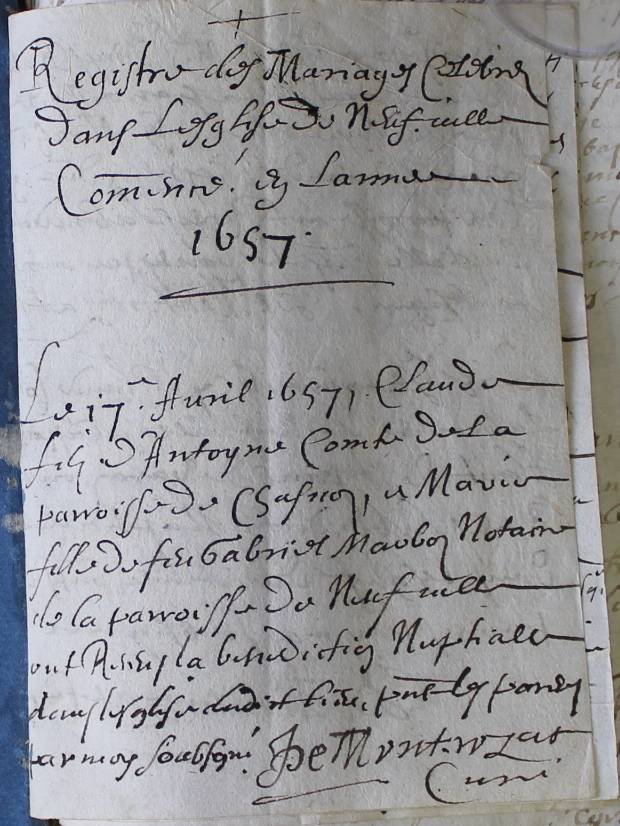 Registre des Mariages Celebrez
dans Lesglise de Neufville
Comencé en Lannee
1657.
Le 17e. Avril 1657, Claude
filz d'Antoyne Comte de la
parroisse de Chasnoy, et Marie
fille de feu Gabriel Notaire
de la parroisse de Neufville
ont Receu la benediction Nuptialle
dans lesglise dudit lieu, pnt les parens
par moy soubsigné De Montrozat
Curé